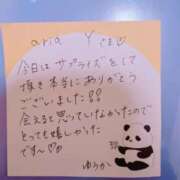 aria Yさま♡
今日はサプライズをして
頂き本当にありがとう
ございました!!
会えると思っていなかったので
とっても嬉しかった
です〜♡
ゆうか